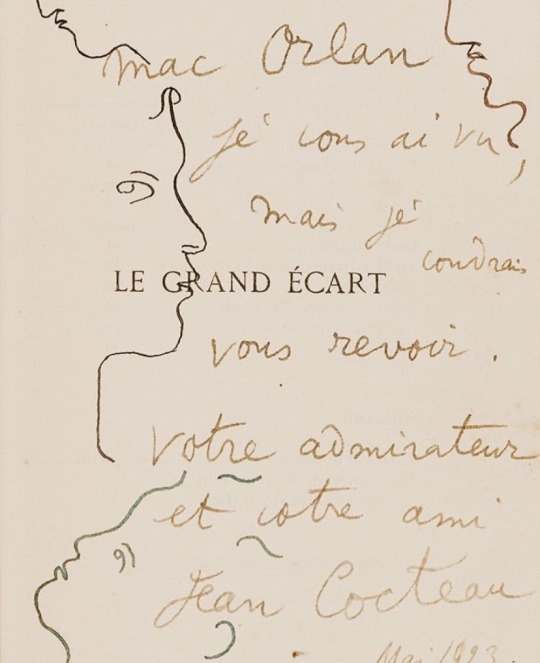 Mac Orlan
je vous ai vu,
mais je
voudrais
LE GRAND ÉCART
vous revoir.
Votre admirateur
et votre ami
Jean Cocteau
Mai 1923.